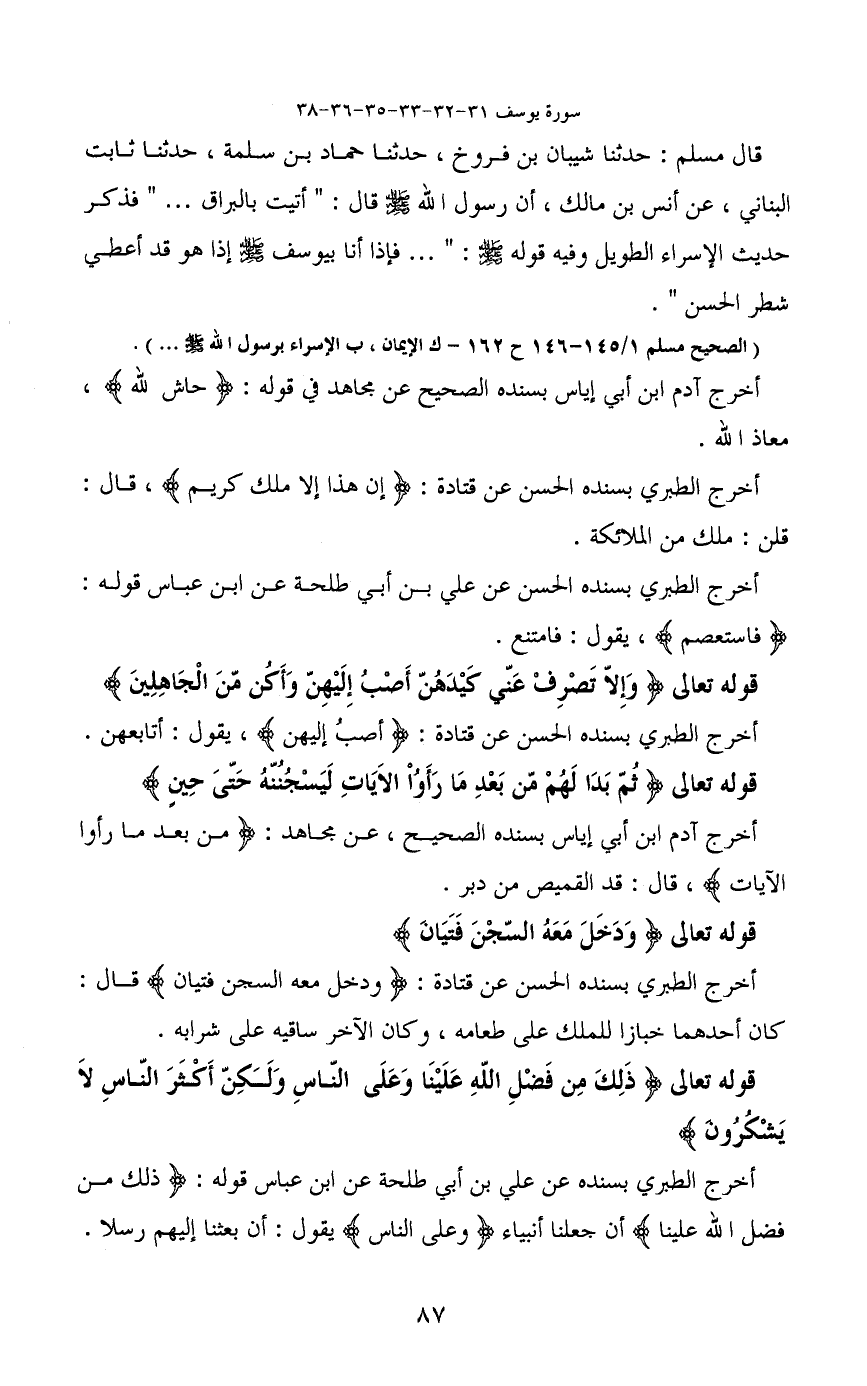 سورة يوسف ٣١-٣٢-٣٣-٣٥-٣٦-٣٨
قال مسلم : حدثنا شيبان بن فروخ ، حدثنا حماد بن سلمة ، حدثنا ثابت
البناني ، عن أنس بن مالك ، أن رسول الله ﷺ قال : " أتيت بالبراق ... " فذكر
حديث الإسراء الطويل وفيه قوله ﷺ : " ... فإذا أنا بيوسف ﷺ إذا هو قد أعطي
شطر الحسن " .
( الصحيح مسلم ١٤٥/١-١٤٦ ح ١٦٢ - ك الإيمان ، ب الإسراء برسول الله ﷺ ... ) .
أخرج آدم ابن أبي إياس بسنده الصحيح عن مجاهد في قوله : ﴿ حاش لله ﴾ ،
معاذ الله .
أخرج الطبري بسنده الحسن عن قتادة : ﴿ إن هذا إلا ملك كريم ﴾ ، قال :
قلن : ملك من الملائكة .
أخرج الطبري بسنده الحسن عن علي بن أبي طلحة عن ابن عباس قوله :
﴿ فاستعصم ﴾ ، يقول : فامتنع .
قوله تعالى ﴿ وَإِلاّ تَصْرِفْ عَنّي كَيْدَهُنّ أَصْبُ إِلَيْهِنّ وَأَكُن مّنَ الْجَاهِلِينَ ﴾
أخرج الطبري بسنده الحسن عن قتادة : ﴿ أصبُ إليهن ﴾ ، يقول : أتابعهن .
قوله تعالى ﴿ ثُمّ بَدَا لَهُمْ مّن بَعْدِ مَا رَأَوُاْ الاَيَاتِ لَيَسْجُنُنّهُ حَتّىَ حِينٍ ﴾
أخرج آدم ابن أبي إياس بسنده الصحيح ، عن مجاهد : ﴿ من بعد ما رأوا
الآيات ﴾ ، قال : قد القميص من دبر .
قوله تعالى ﴿ وَدَخَلَ مَعَهُ السّجْنَ فَتَيَانَ ﴾
أخرج الطبري بسنده الحسن عن قتادة : ﴿ ودخل معه السجن فتيان ﴾ قال :
كان أحدهما خبازا للملك على طعامه ، وكان الآخر ساقيه على شرابه .
قوله تعالى ﴿ ذَلِكَ مِن فَضْلِ اللّهِ عَلَيْنَا وَعَلَى النّاسِ وَلَـَكِنّ أَكْثَرَ النّاسِ لاَ
يَشْكُرُونَ ﴾
أخرج الطبري بسنده عن علي بن أبي طلحة عن ابن عباس قوله : ﴿ ذلك من
فضل الله علينا ﴾ أن جعلنا أنبياء ﴿ وعلى الناس ﴾ يقول : أن بعثنا إليهم رسلا .
٨٧